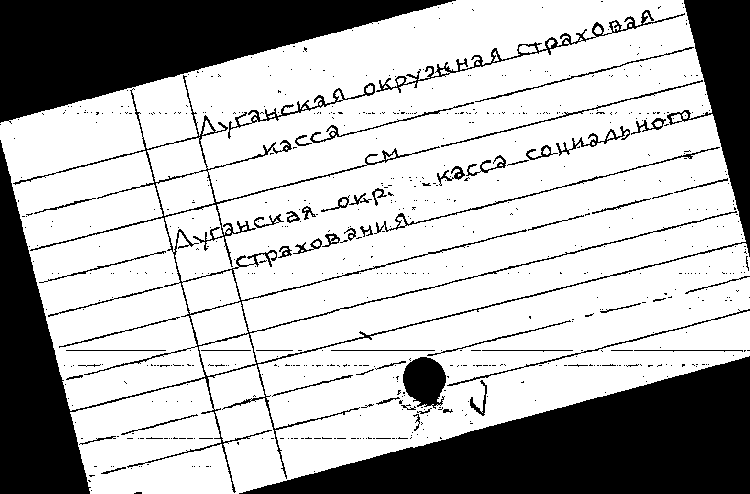 Луганская окружная страховая
касса
см
Луганская окр. касса социального
страхования.